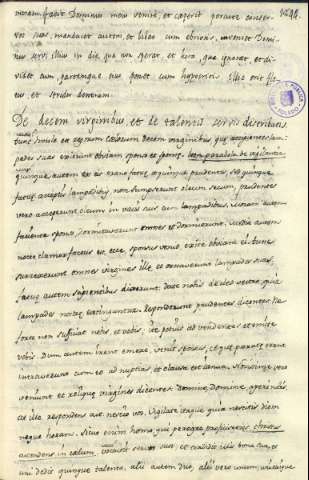 moram facit Dominus meus venire, et cœperit percutere conser-
vos suos, manducet autem et bibat cum ebriosis, veniet Domi-
nus servi illius in die qua non sperat, et hora qua ignorat, et di-
videt eum, partemque eius ponet cum hypocritis illic erit fle-
tus, et stridor dentium.
De decem virginibus, et de talentis servis distributis
Tunc simile erit regnum cælorum decem virginibus, quæ accipientes lam-
pades suas exierunt obviam sponso et sponsæ.
quinque autem ex eis erant fatuæ, et quinque prudentes, sed quinque
fatuæ acceptis lampadibus non sumpserunt oleum secum, prudentes
vero acceperunt oleum in vasis suis cum lampadibus, moram autem
faciente sponso, dormitaverunt omnes et dormierunt, media autem
nocte clamor factus est ecce sponsus venit, exite obviam ei, tunc
surrexerunt omnes virgines illæ et ornaverunt lampades suas,
fatuæ autem sapientibus dixerunt, date nobis de oleo vestro, quia
lampades nostræ extinguuntur. Responderunt prudentes dicentes Ne
forte non sufficiat nobis et vobis, ite potius ad vendentes et emite
vobis. Dum autem irent emere, venit sponsus, et quæ paratæ erant
intraverunt cum eo ad nuptias, et clausa est ianua. Novissime vero
veniunt et reliquæ virgines dicentes, domine, domine, aperi nobis,
at ille respondens ait nescio vos. Vigilate itaque quia nescitis diem
neque horam. Sicut enim homo, qui peregre
ascendens in cælum, vocavit servos suos, et tradidit illis bona sua, et
uni dedit quinque talenta, alii autem duo, alii vero unum, unicuique